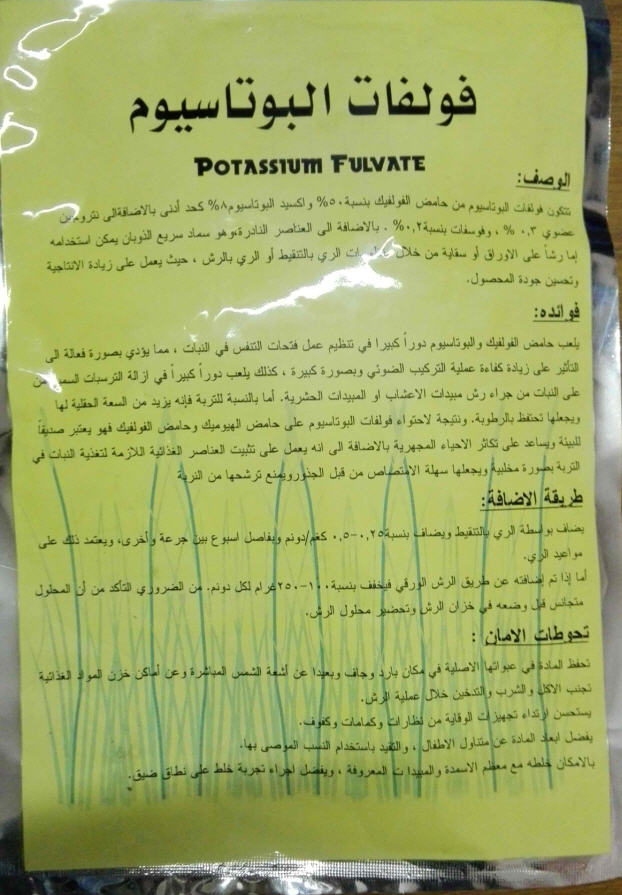 فولفات البوتاسيوم
POTASSIUM FULVATE
الوصف:
تتكون فولفات البوتاسيوم من حامض الفولفيك بنسبة ٥٠% واكسيد البوتاسيوم ٨% كحد أدنى بالاضافةالى نتروجين
عضوي ٠,٣ % ، وفوسفات بنسبة ٠,٢% . بالاضافة الى العناصر النادرة،وهو سماد سريع الذوبان يمكن استخدامه
إما رشاً على الاوراق أو سقاية من خلال الري بالتنقيط أو الري بالرش ، حيث يعمل على زيادة الانتاجية
وتحسين جودة المحصول.
فوائده:
يلعب حامض الفولفيك والبوتاسيوم دوراً كبيرا في تنظيم عمل فتحات التنفس في النبات ، مما يؤدي بصورة فعالة الى
التأثير على زيادة كفاءة عملية التركيب الضوئي وبصورة كبيرة ، كذلك يلعب دوراً كبيراً في ازالة الترسبات
على النبات من جراء رش مبيدات الاعشاب او المبيدات الحشرية. أما بالنسبة للتربة فإنه يزيد من السعة الحقلية لها
ويجعلها تحتفظ بالرطوبة. ونتيجة لاحتواء فولفات البوتاسيوم على حامض الهيوميك وحامض الفولفيك فهو يعتبر صديقاً
للبيئة ويساعد على تكاثر الاحياء المجهرية بالاضافة الى انه يعمل على تثبيت العناصر الغذائية اللازمة لتغذية النبات في
التربة بصورة مخلبية ويجعلها سهلة الامتصاص من قبل الجذورويمنع ترشحها من التربة
طريقة الاضافة:
يضاف بواسطة الري بالتنقيط ويضاف بنسبة ٠,٢٥-٠,٥ كغم/دونم وبفاصل اسبوع بين جرعة وأخرى، ويعتمد ذلك على
مواعيد الري.
أما إذا تم إضافته عن طريق الرش الورقي فيخفف بنسبة ١٠٠-٢٥٠غرام لكل دونم. من الضروري التأكد من أن المحلول
متجانس قبل وضعه في خزان الرش وتحضير محلول الرش.
تحوطات الامان :
تحفظ المادة في عبواتها الاصلية في مكان بارد وجاف وبعيدا عن أشعة الشمس المباشرة وعن أماكن خزن المواد الغذائية
تجنب الاكل والشرب والتدخين خلال عملية الرش.
يستحسن ارتداء تجهيزات الوقاية من نظارات وكمامات وكفوف.
يفضل ابعاد المادة عن متناول الاطفال ، والتقيد باستخدام النسب الموصى بها.
بالامكان خلطه مع معظم الاسمدة والمبيدا ت المعروفة ، ويفضل اجراء تجربة خلط على نطاق ضيق.